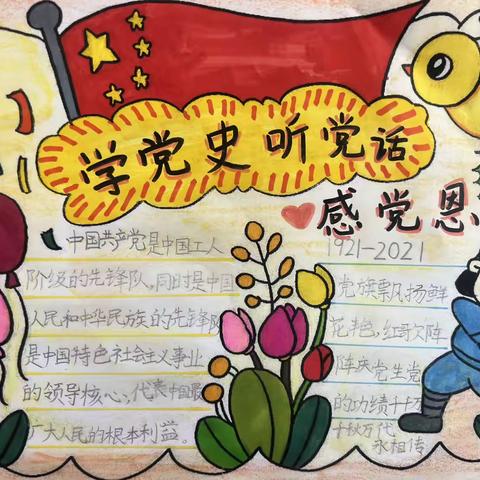 学党史听党话
感党恩
中国共产党是中国工人
阶级的先锋队,同时是中国
人民和中华民族的先锋队
是中国特色社会主义事业
的领导核心,代表中国最
广大人民的根本利益。
1921-2021
党旗飘扬鲜
花丰色,红哥欠阵
阵庆党生党
的功绩千古万
千秋万代
永相传